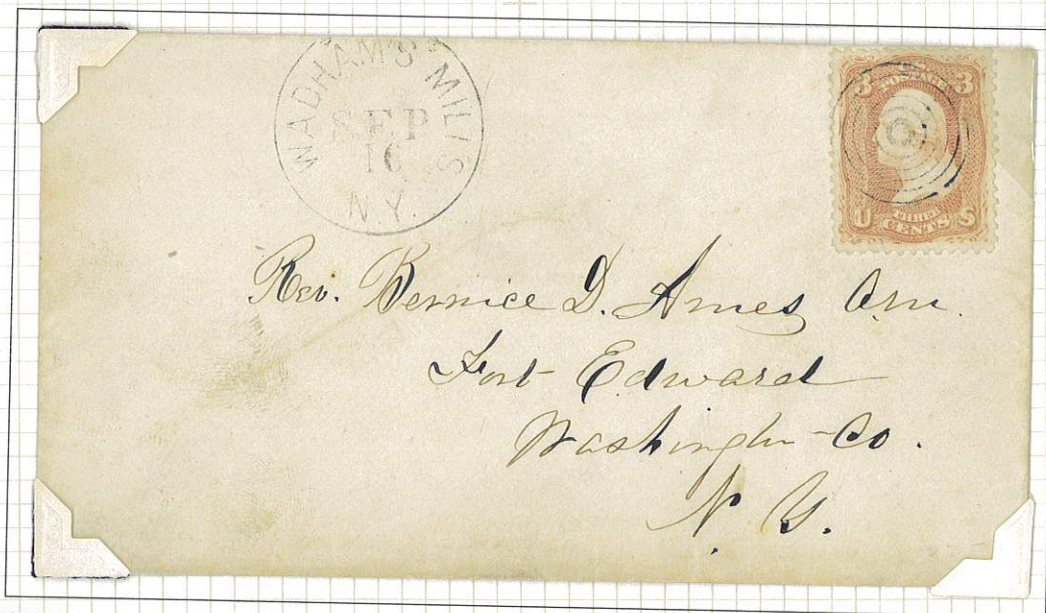 WADHAM'S MILLS
SEP
16
N.Y.
3 U.S. 3
POSTAGE
U THREE S
CENTS
Rev. Bernice D. Ames
Fort Edward
Washington Co.
N. Y.